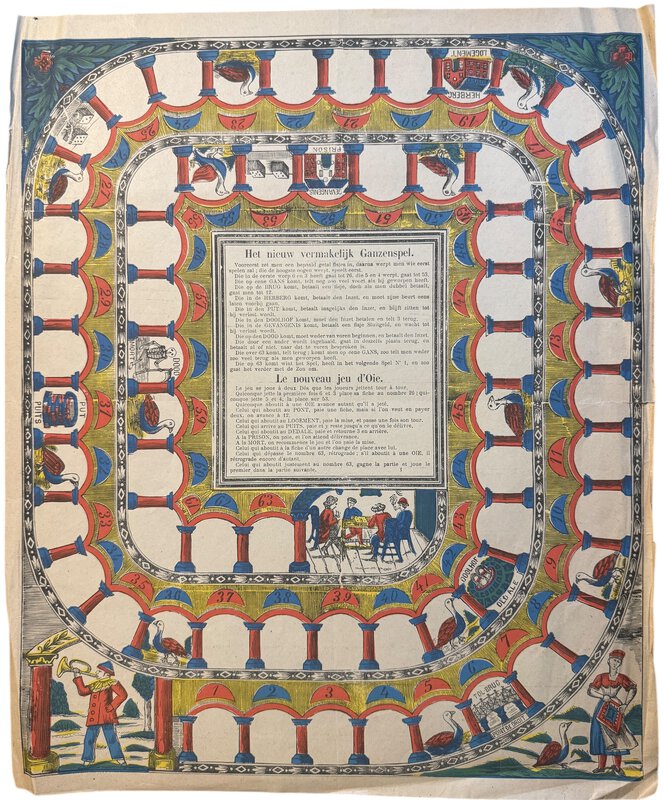 Het nieuw vermakelijk Ganzenspel.
Vooreerst zet men een bepaald getal in, daarna werpt men wie eerst
spelen zal; die de hoogste oogen werpt, speelt eerst.
Die in de eerste werp 6 en 3 heeft gaat tot 26, die 5 en 4 werpt, gaat tot 53.
Die op eene GANS komt, telt nog zoo veel voort als hij geworpen heeft.
Die op de BRUG komt, betaalt een fisje, doch als men dubbel betaalt,
gaat men tot 12.
Die in de HERBERG komt, betaalt den Inzet, en moet zijne beurt eens
laten voorbij gaan.
Die in den PUT komt, betaalt insgelijks den Inzet, en blijft zitten tot
hij verlost wordt.
Die in den DOOLHOF komt, moet den Inzet betalen en telt 3 terug.
Die in de GEVANGENIS komt, betaalt een fisje Sluisgeld, en wacht tot
hij verlost wordt.
Die op den DOOD komt, moet weder van voren beginnen, en betaalt den Inzet.
Die door een ander wordt ingehaald, gaat in deszelfs plaats terug, en
betaalt al of niet, naar dat te voren besproken is.
Die over 63 komt, telt terug; komt men op eene GANS, zoo telt men weder
zoo veel terug als men geworpen heeft.
Die op 63 komt wint het Spel, heeft in het volgende Spel N° 1, en zoo
gaat het verder met de Zon om.
Le nouveau jeu d'Oie.
Le jeu se joue à deux Dés que les joueurs jettent tour à tour.
Quiconque jette la première fois 6 et 3 place sa fiche au nombre 26; qui-
conque jette 5 et 4, la place sur 53.
Quiconque aboutit à une OIE avance autant qu'il a jeté.
Celui qui aboutit au PONT, paie une fiche, mais si l'on veut en payer
deux, on avance à 12.
Celui qui aboutit au LOGEMENT, paie la mise, et passe une fois son tour.
Celui qui arrive au PUITS, paie et y reste jusqu'à ce qu'on le délivre.
Celui qui aboutit au DÉDALE, paie et retourne 3 en arrière.
A la PRISON, on paie, et l'on attend délivrance.
A la MORT, on recommence le jeu et l'on paie la mise.
Celui qui aboutit à la fiche d'un autre change de place avec lui.
Celui qui dépasse le nombre 63, rétrograde: s'il aboutit à une OIE, il
rétrograde encore d'autant.
Celui qui aboutit justement au nombre 63, gagne la partie et joue le
premier dans la partie suivante.
1
1
2
3
4
5
DE BRUG
7
8
11
16
17
HERBERG
LOGEMENT
21
22
23
25
26
27
28
29
30
PUT
PUITS
31
33
34
35
36
37
38
39
40
41
DOOLHOF
DEDALE
43
44
45
46
47
48
49
50
51
GEVANGENIS
PRISON
53
55
56
57
DOOD
59
60
61
62
63